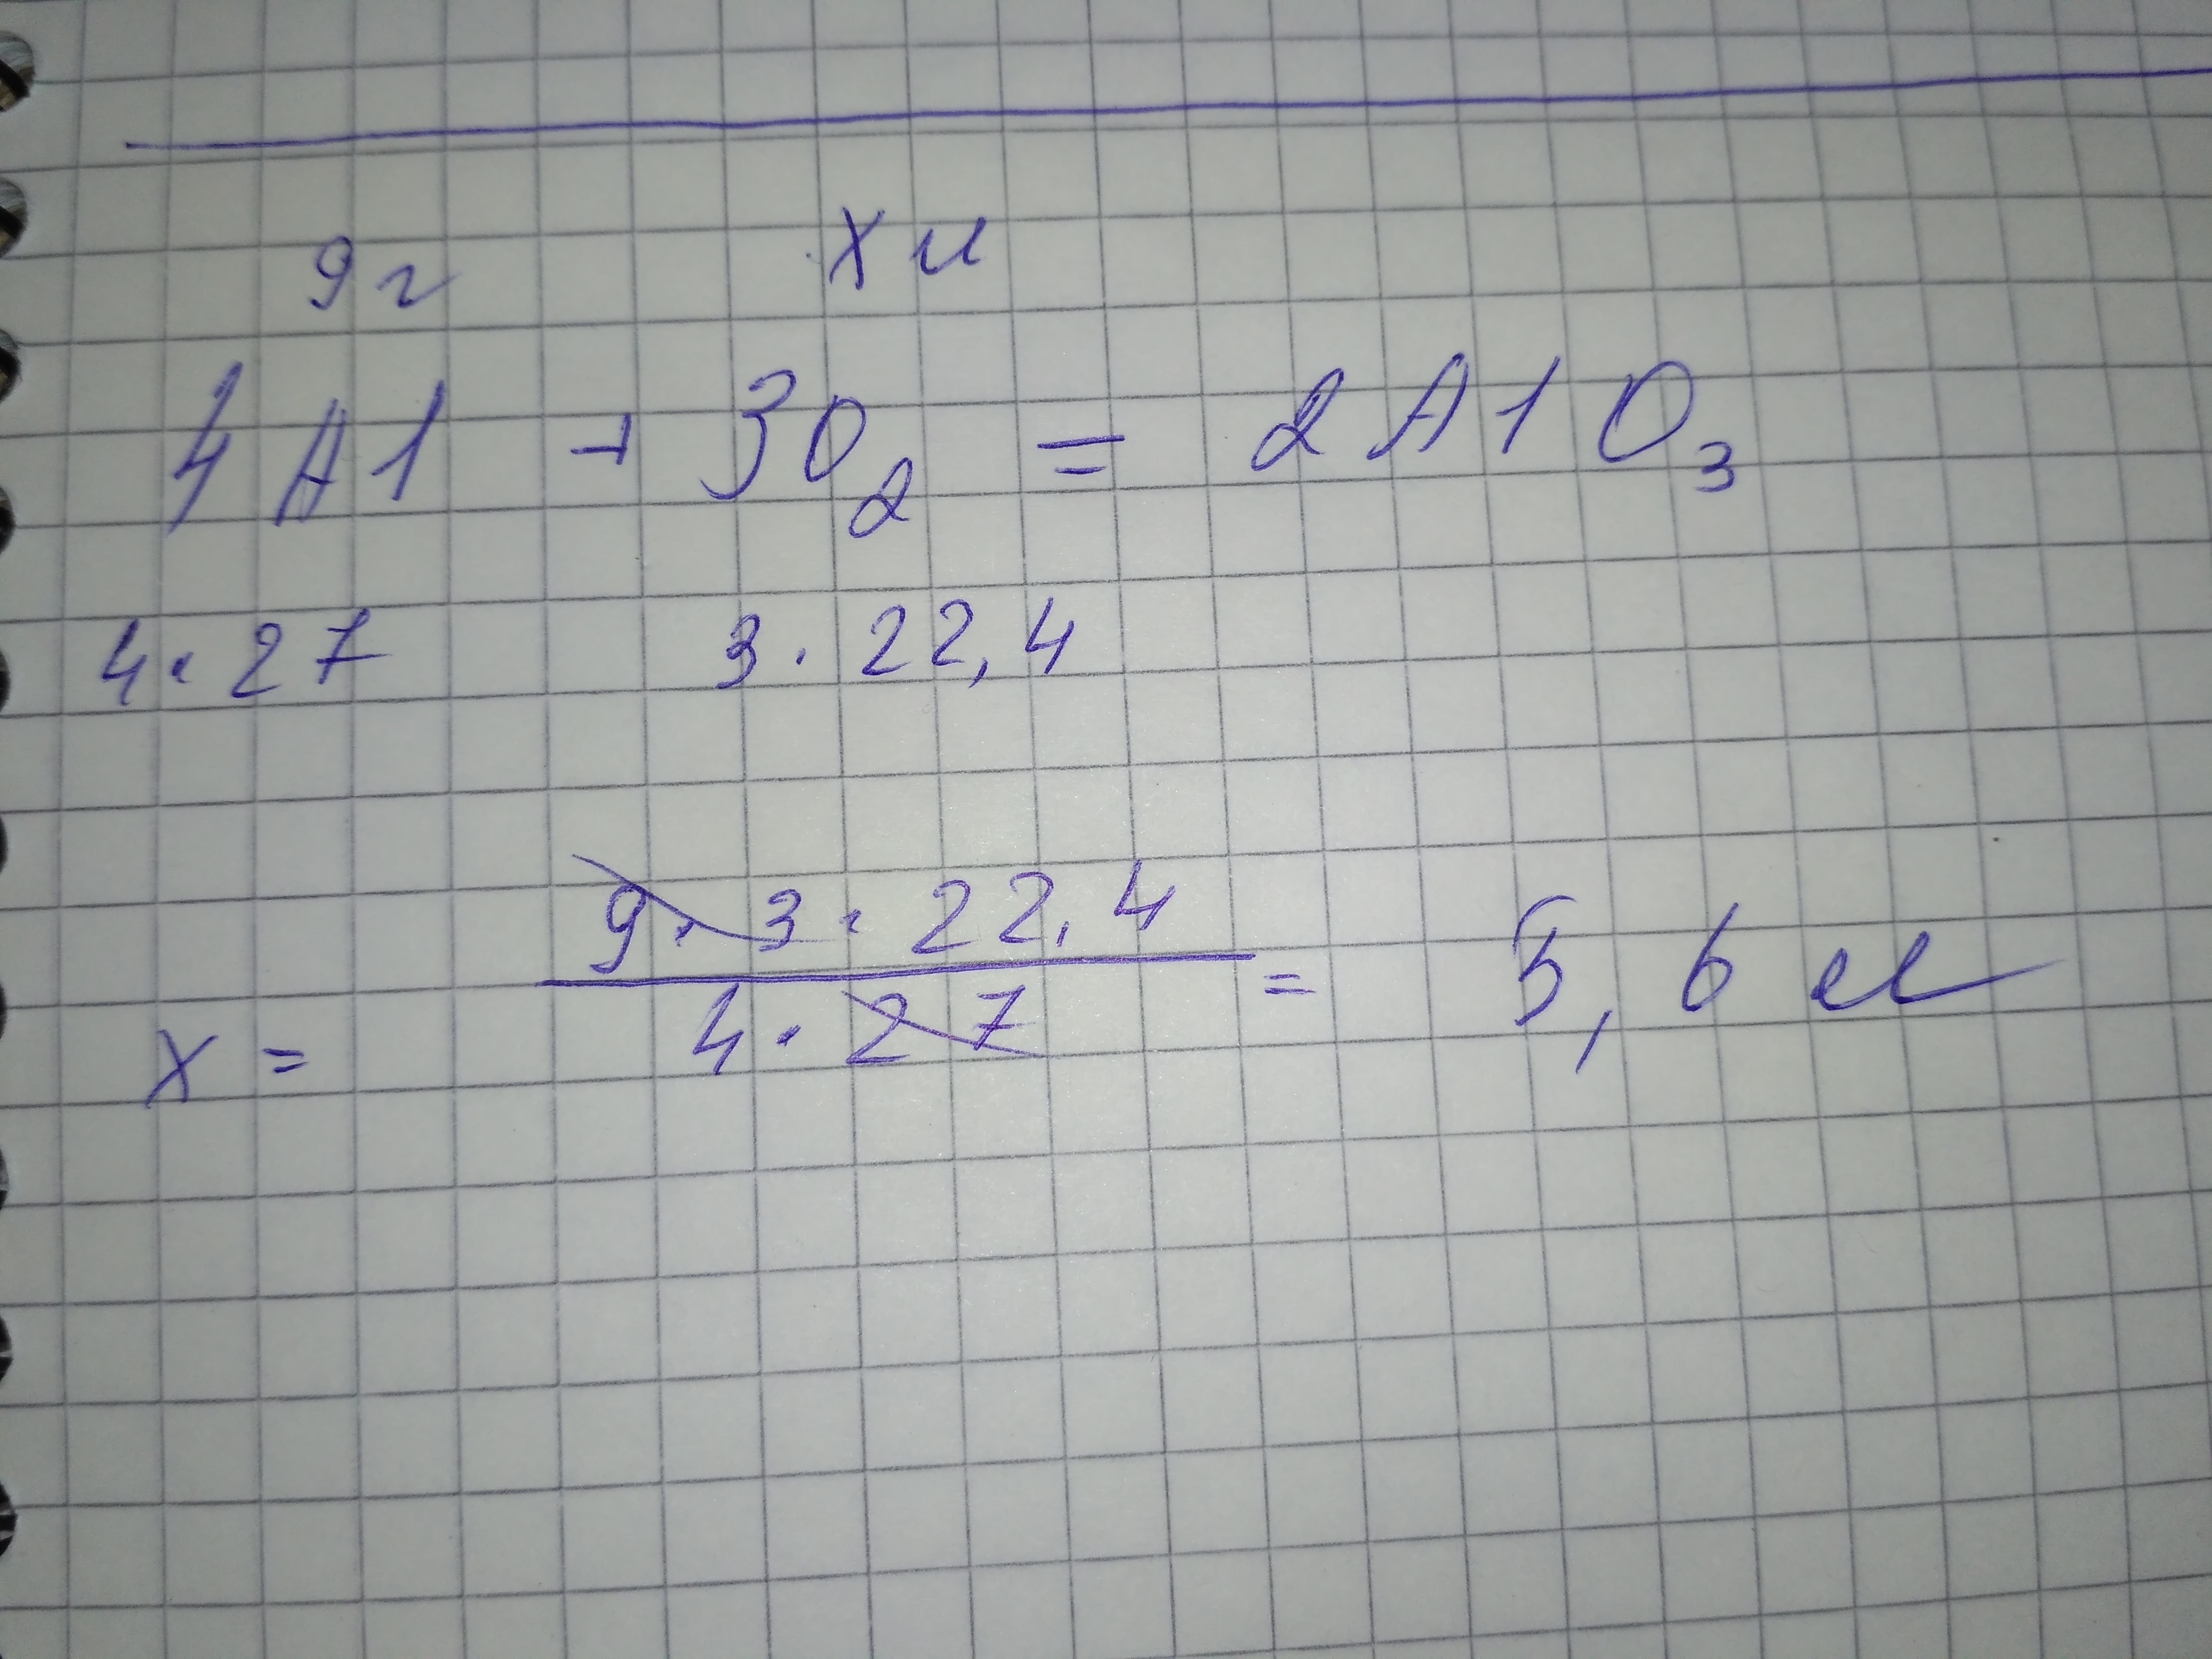 9 г х л
4 Al + 3O₂ = 2 Al O₃
4 · 27 3 · 22,4
x = (9 · 3 · 22,4) / (4 · 27) = 5,6 л